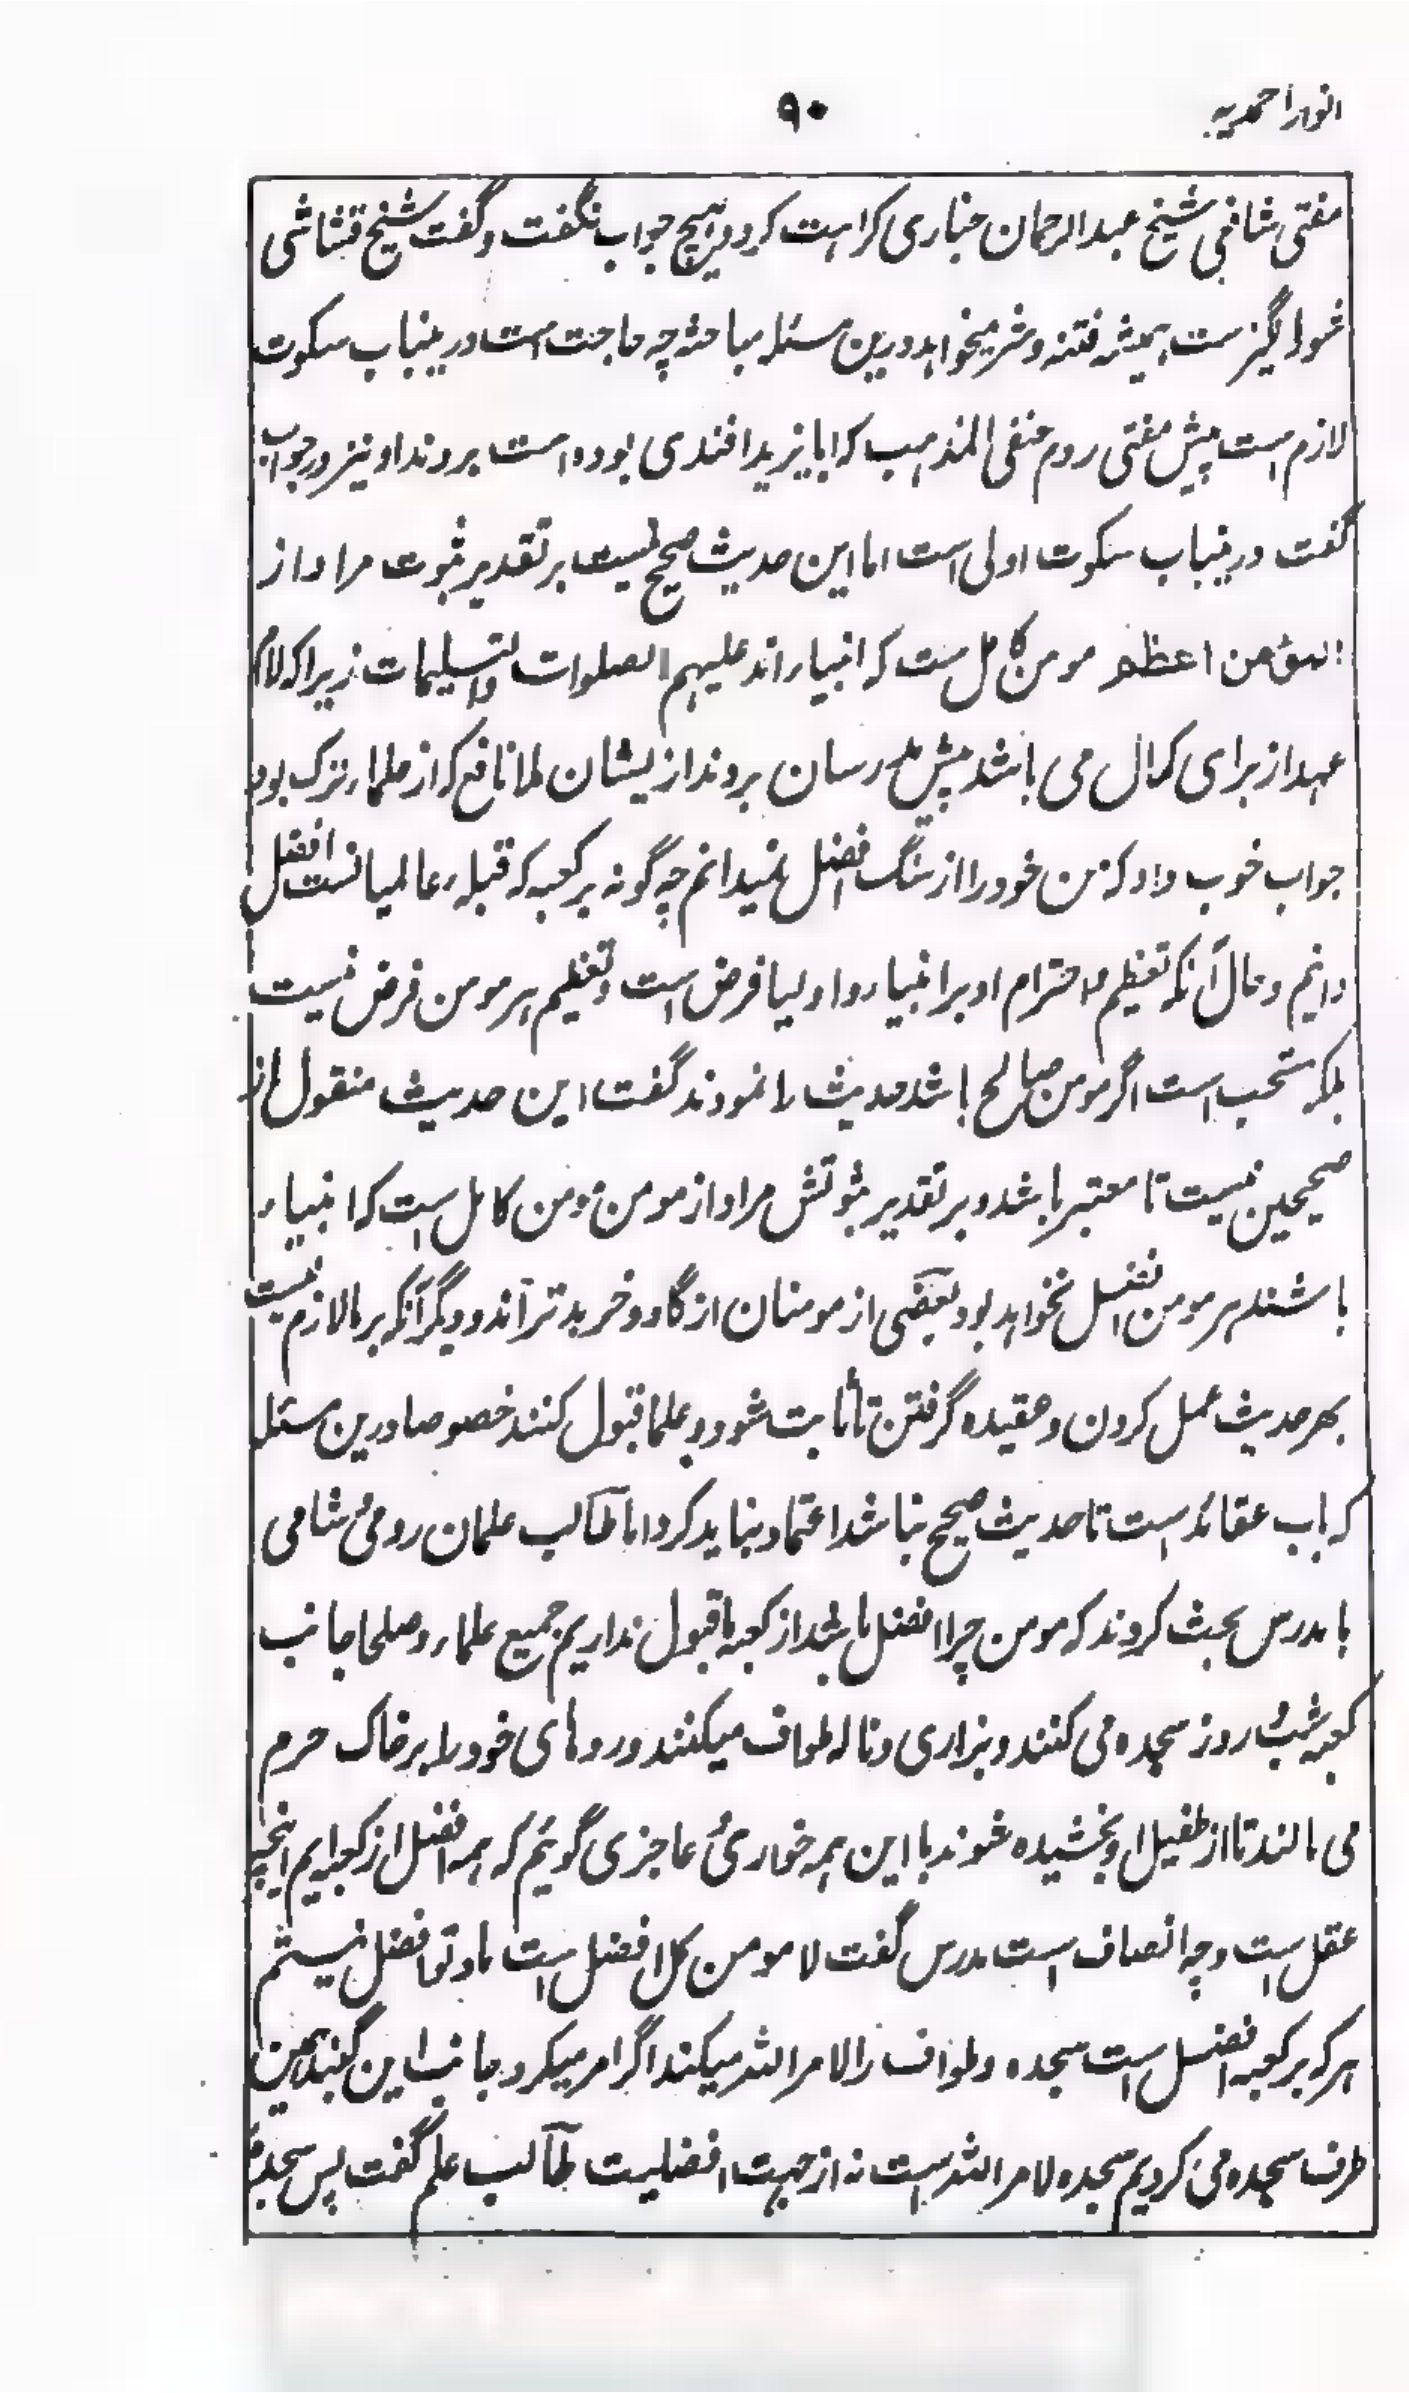 انوار احمدیه
۹۰
مفتی شافعی شیخ عبدالرحمان خباری کراهت کرد و هیچ جواب نگفت و گفت شیخ قشاشی
شورانگیز ست همیشه فتنه و شر میخواهد درین مسئله مباحثه چه حاجت است درینباب سکوت
لازم است پیش مفتی روم حنفی المذهب که ابایزید افندی بوده است بروند او نیز در جواب
گفت درینباب سکوت اولی است اما این حدیث صحیح نیست بر تقدیر ثبوت مراد از
المؤمن اعظم مومن کامل ست که انبیاء اند علیهم الصلوات والتسلیمات زیرا که لام
عهد از برای کمال می باشد پیش رسان بروند ازیشان لما نافع که از علماء ترک بود
جواب خوب داد که من خود را از سنگ افضل نمیدانم چه گونه بر کعبه که قبلهء عالمیانست افضل
دانم و حال آنکه تعظیم و احترام او بر انبیاء و اولیا فرض است و تعظیم هر مومن فرض نیست
بلکه مستحب است اگر مومن صالح باشد حدیث را نمودند گفت این حدیث منقول از
صحیحین نیست تا معتبر باشد و بر تقدیر ثبوتش مراد از مومن مومن کامل است که انبیاء
باشند هر مومن افضل نخواهد بود بعضی از مومنان از گاو و خر بدتر آند و دیگر آنکه بر ما لازم نیست
بهر حدیث عمل کردن و عقیده گرفتن تا ثابت شود و علما قبول کنند خصوصا درین مسئله
که باب عقائد است تا حدیث صحیح نباشد اعتماد نباید کرد اما طالب علمان رومی و شامی
با مدرس بحث کردند که مومن چرا افضل باشد از کعبه ما قبول نداریم جمیع علماء و صلحا جانب
کعبه شب و روز سجده می کنند و بزاری و ناله طواف میکنند و روهای خود را بر خاک حرم
می مالند تا از طفیل او بخشیده شوند با این همه خواری و عاجزی گوئیم که همه افضل از کعبه ایم اینچه
عقل است و چه انصاف است مدرس گفت لا مومن کل افضل است ما و تو افضل نیستم
هر که بر کعبه افضل است سجده و طواف را لامر الله میکند اگر امر میکرد جانب این گنبد همین
طرف سجده می کردیم سجده لامر الله است نه از جهت افضلیت طالب علم گفت پس سجده